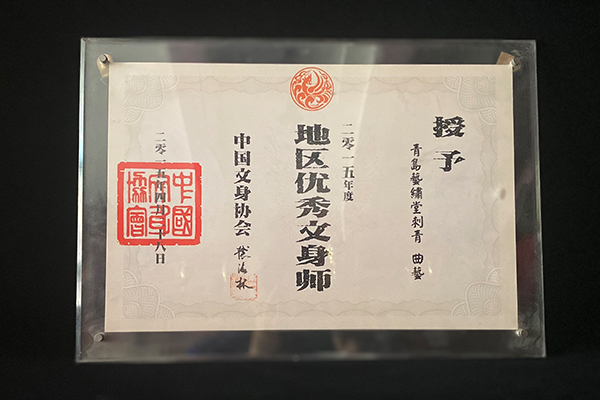 授予
青島藝繡堂刺青 曲藝
二零一五年度
地区优秀文身师
中国文身协会
二零一五年四月二十八日
中國文身協會